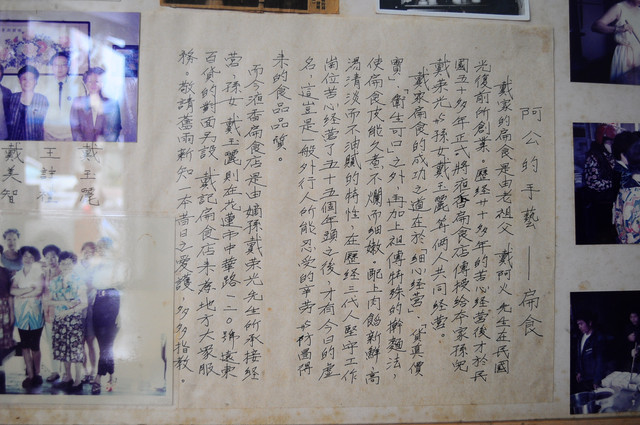 阿公的手藝——扁食
戴家的扁食是由老祖父 戴阿火 先生在民國
光復前所創業。歷經廿十多年的苦心經營後才於民
國五十多年正式將液香扁食店傳授給本家孫兒
戴榮光與孫女戴玉麗等個人共同經營。
戴家扁食的成功之道在於"細心經營"、"貨真價
實"、"衛生可口"之外，再加上祖傳特殊的擀麵法，
使扁食皮能久煮不爛而細嫩。配上肉餡新鮮、高
湯清淡而不油膩的特性，在歷經三代人堅守工作
崗位苦心經營了五十五個年頭之後，才有今日的虛
名，這豈是一般外行人所能忍受的辛勞
來的食品品質。
而今液香扁食店是由嫡孫戴榮光先生所承接經
營，孫女 戴玉麗則在花蓮市中華路一二〇號遠東
百貨的對面另設 戴記扁食店來為地方大家服
務。敬請舊雨新知一本昔日之愛護，多多指教。
戴玉麗
王
戴美智